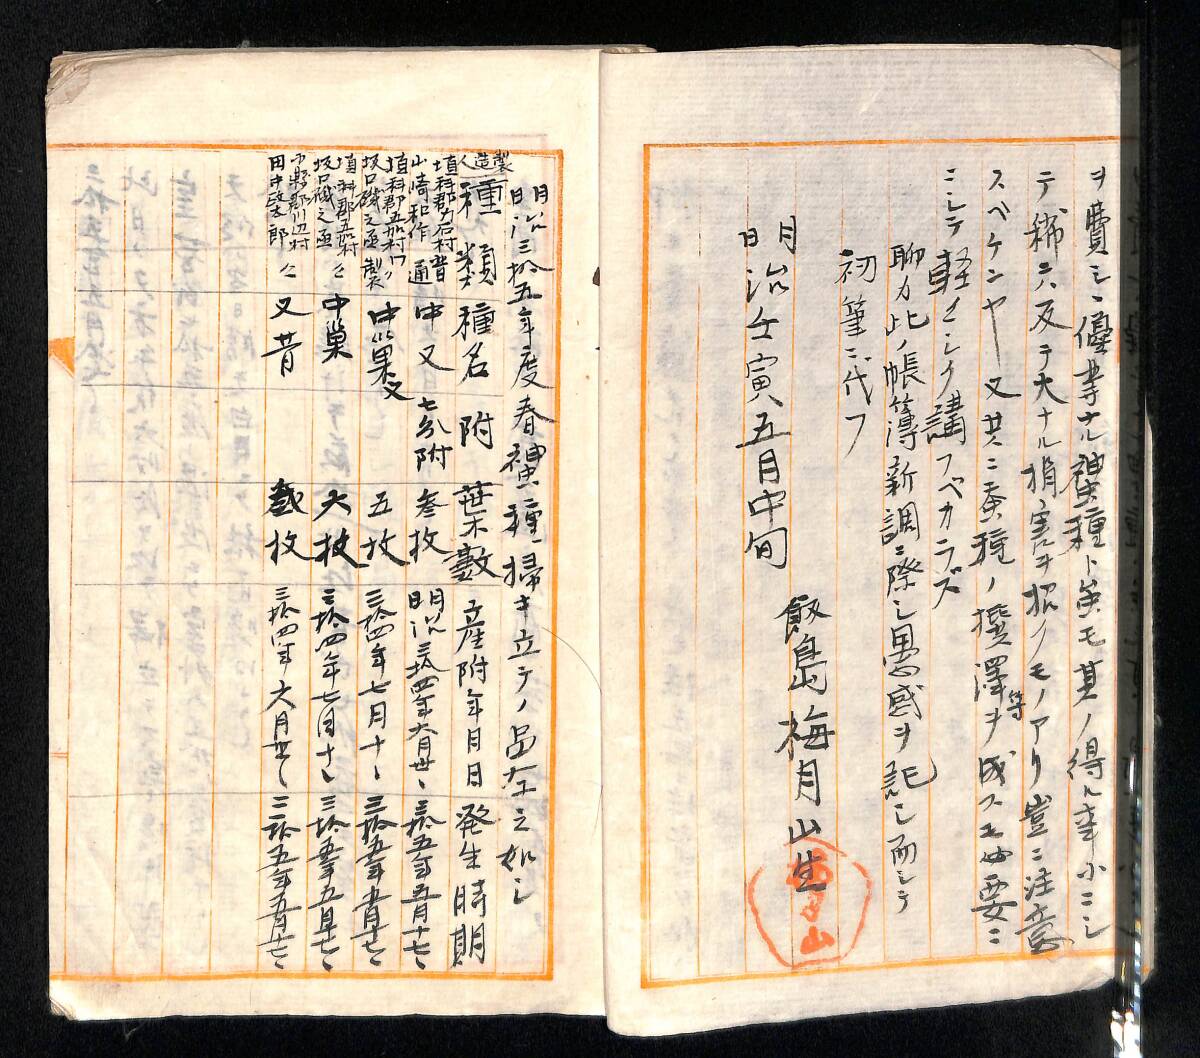 ヲ費シ、優等ナル蚕種ト虽モ其ノ得ル幸小ニシ
テ稀ニハ反テ大ナル損害ヲ招クモノアリ豈ニ注意
スベケンヤ又共ニ蚕種ノ撰澤等ヲ成スモ必要ニ
ニシテ軽〻シク講フベカラズ
聊カ此ノ帳簿新調ニ際シ愚感ヲ記シ而シテ
初筆ニ代フ
明治壬寅五月中旬
飯島梅月山生
明治三拾五年度春蚕種掃キ立テノ品左之如シ
製造人 種類 種名 附 葉木数 産附年月日 発生時期
埴科郡力石村 山崎和作 普通 中又 七分附 参枚 明治三拾四年六月廿〻 三拾五年五月十七〻
埴科郡五加村 坂口磯之函製 中巣又 五枚 三拾四年七月十〻 三拾五年五月十七〻
埴科郡五加村 坂口磯之函 〻 中巣 六枚 三拾四年七月十〻 三拾五年五月十七〻
小県郡川辺村 〻 又昔 弐枚 三拾四年六月廿〻 三拾五年五月十七〻